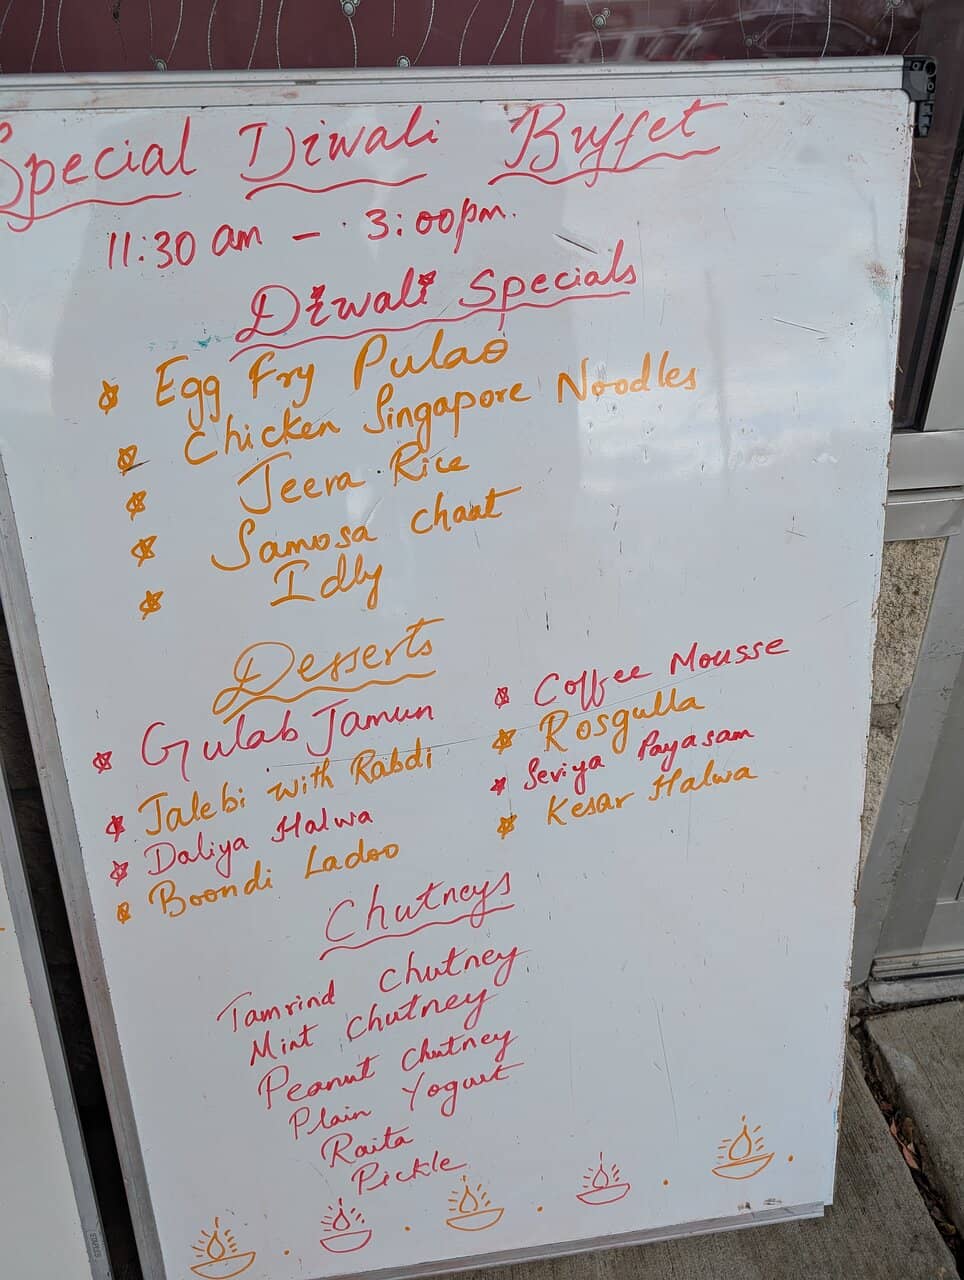 Special Diwali Buffet
11:30 am - 3:00pm.
Diwali Specials
Egg Fry Pulao
Chicken Singapore Noodles
Jeera Rice
Samosa Chaat
Idly
Desserts
Gulab Jamun
Jalebi with Rabdi
Daliya Halwa
Boondi Ladoo
Coffee Mousse
Rosgulla
Seviya Payasam
Kesar Halwa
Chutneys
Tamrind Chutney
Mint Chutney
Peanut Chutney
Plain Yogurt
Raita
Pickle